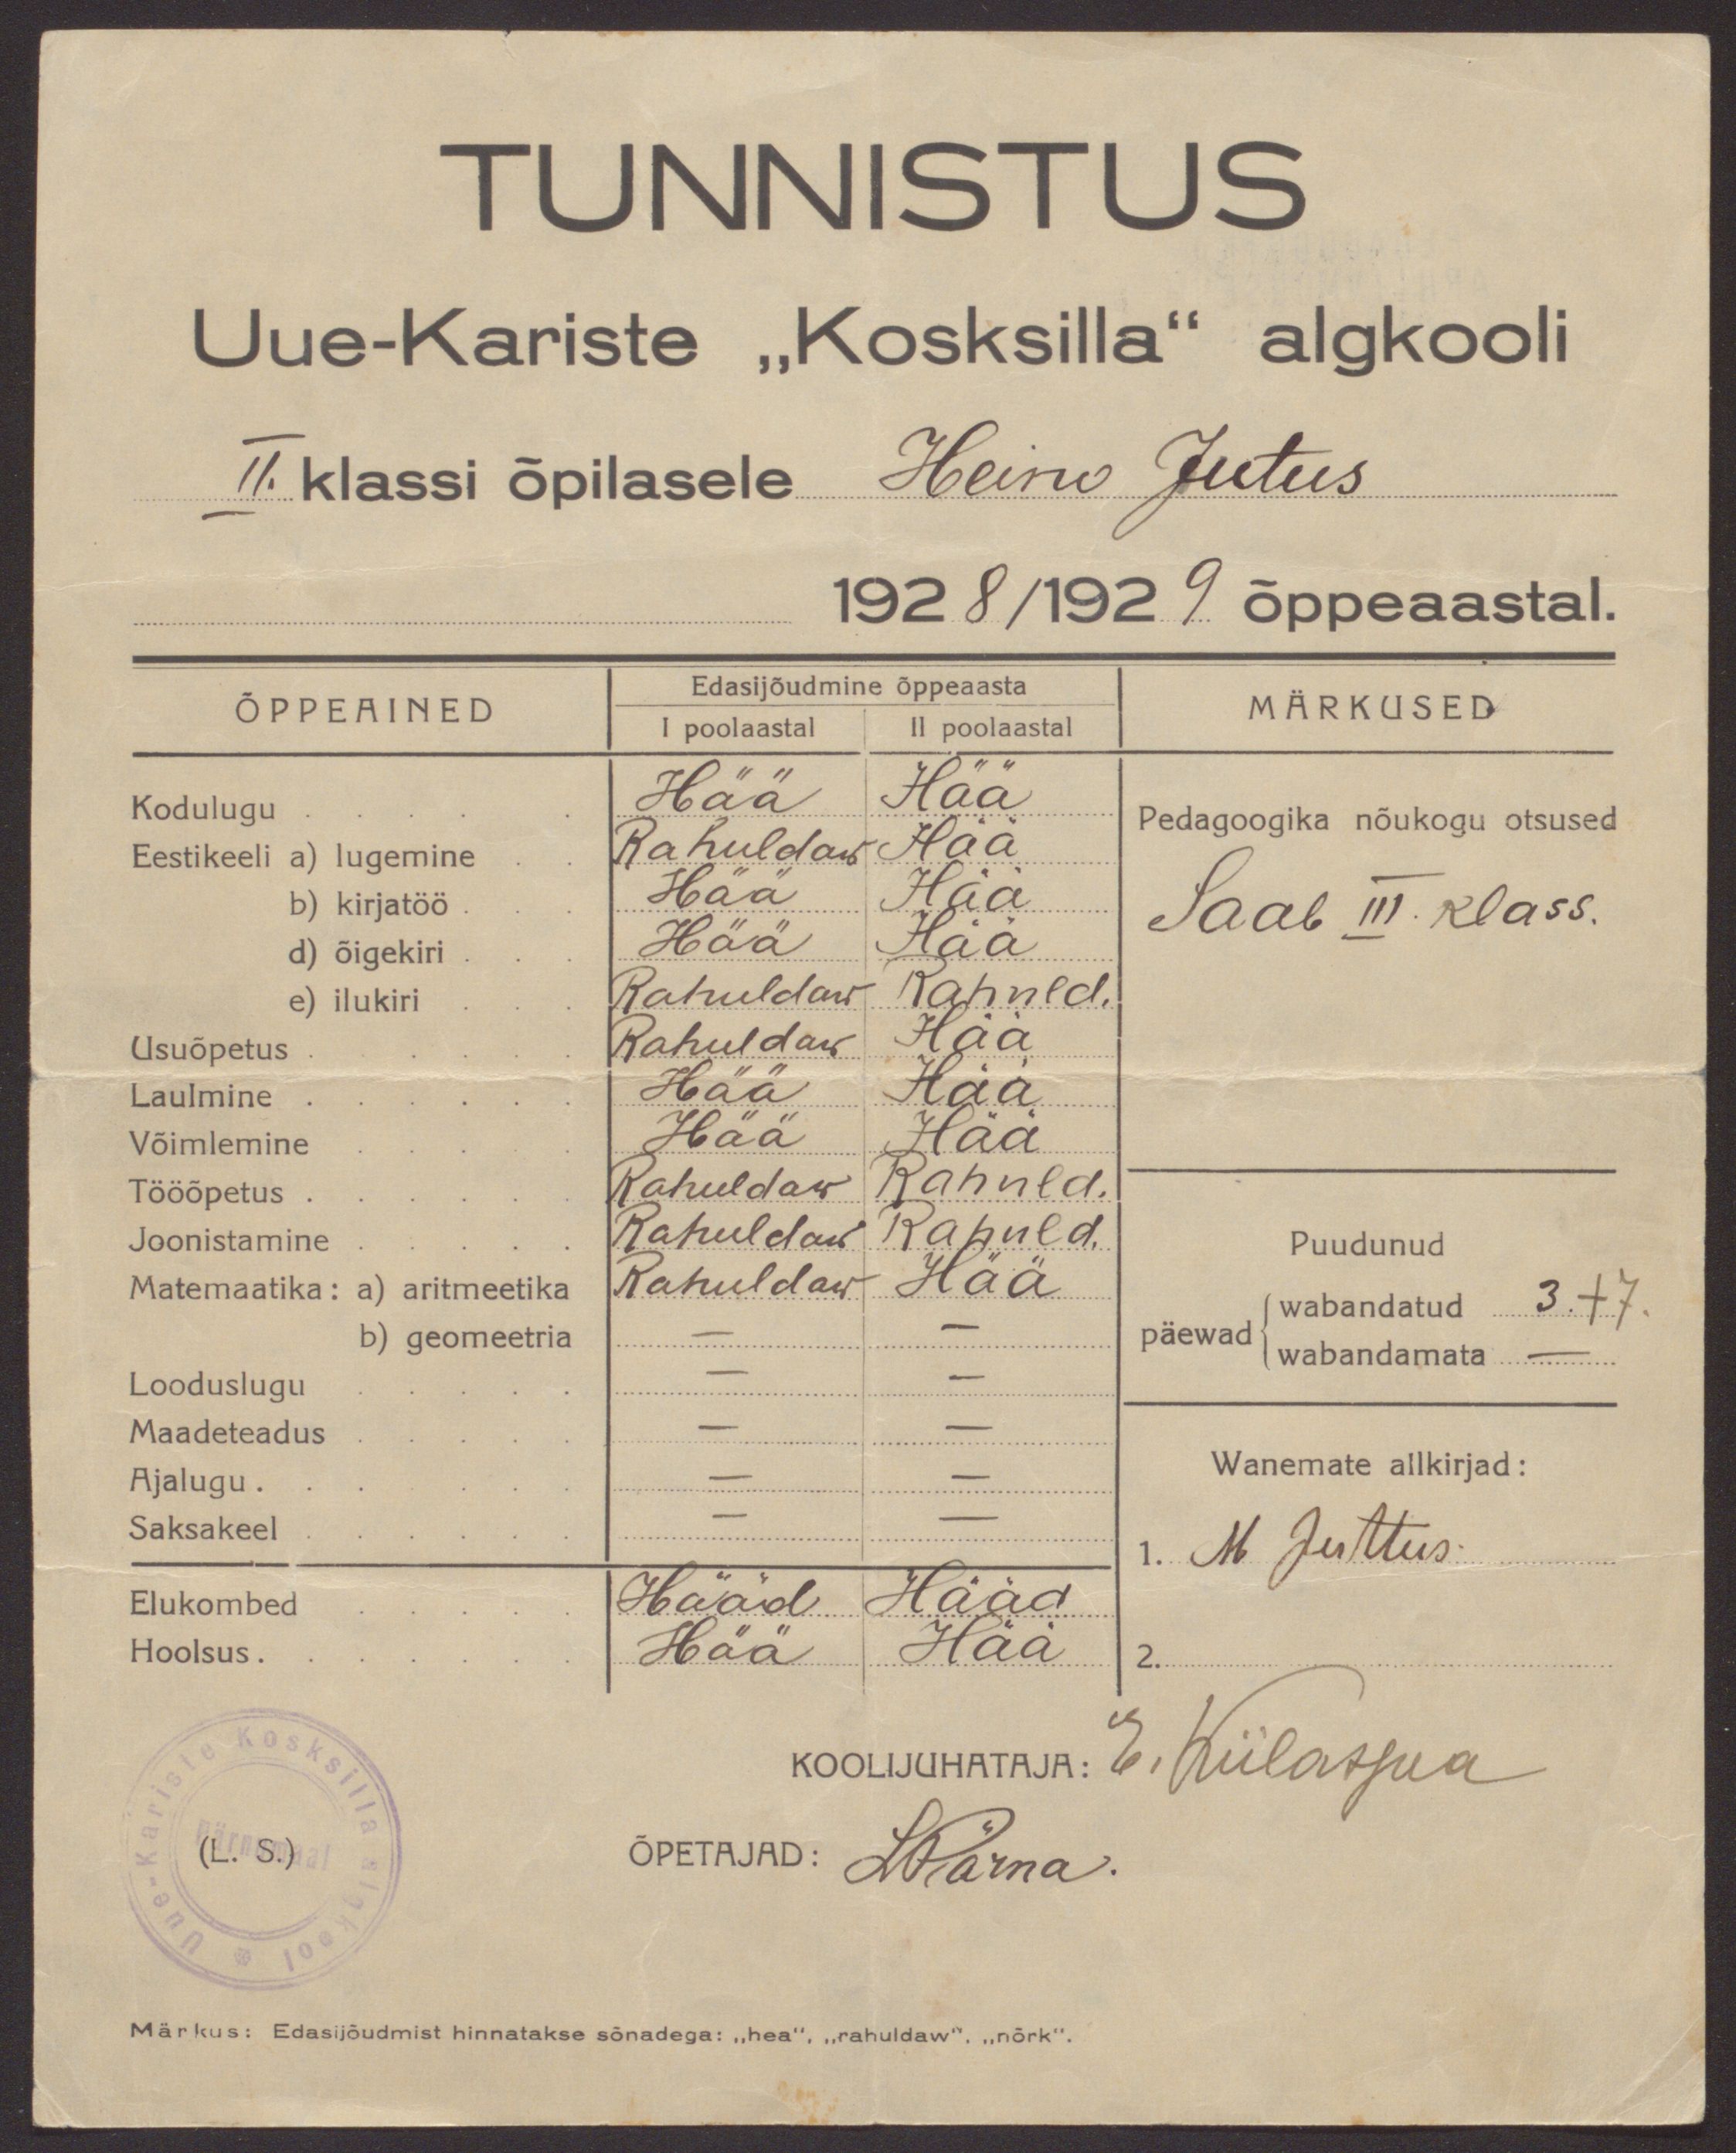 TUNNISTUS
Uue-Kariste „Kosksilla“ algkooli
II. klassi õpilasele Heino Jutus
1928/1929 õppeaastal.
ÕPPEAINED
Edasijõudmine õppeaasta
MÄRKUSED
I poolaastal II poolaastal
Kodulugu . . . . . Hää Hää
Eestikeeli a) lugemine . . Rahuldaw Hää
b) kirjatöö . . . Hää Hää
d) õigekiri . . . Hää Hää
e) ilukiri . . . Rahuldaw Rahuld.
Usuõpetus . . . . . . Rahuldaw Hää
Laulmine . . . . . . Hää Hää
Võimlemine . . . . . Hää Hää
Tööõpetus . . . . . . Rahuldaw Rahuld.
Joonistamine . . . . . Rahuldaw Rahuld.
Matemaatika: a) aritmeetika Rahuldaw Hää
b) geomeetria — —
Looduslugu . . . . . — —
Maadeteadus . . . . . — —
Ajalugu . . . . . . . — —
Saksakeel . . . . . . — —
Elukombed . . . . . Hääd Hääd
Hoolsus . . . . . . . Hää Hää
Pedagoogika nõukogu otsused
Saab III. klass.
Puudunud
päewad { wabandatud 3.+7.
wabandamata —
Wanemate allkirjad:
1. M Juttus.
2.
KOOLIJUHATAJA: E. Külaspea
ÕPETAJAD: L Pärna.
(L. S.)
Uue-Kariste Kosksilla algkool
Pärnumaal
Märkus: Edasijõudmist hinnatakse sõnadega: „hea“, „rahuldaw“, „nõrk“.